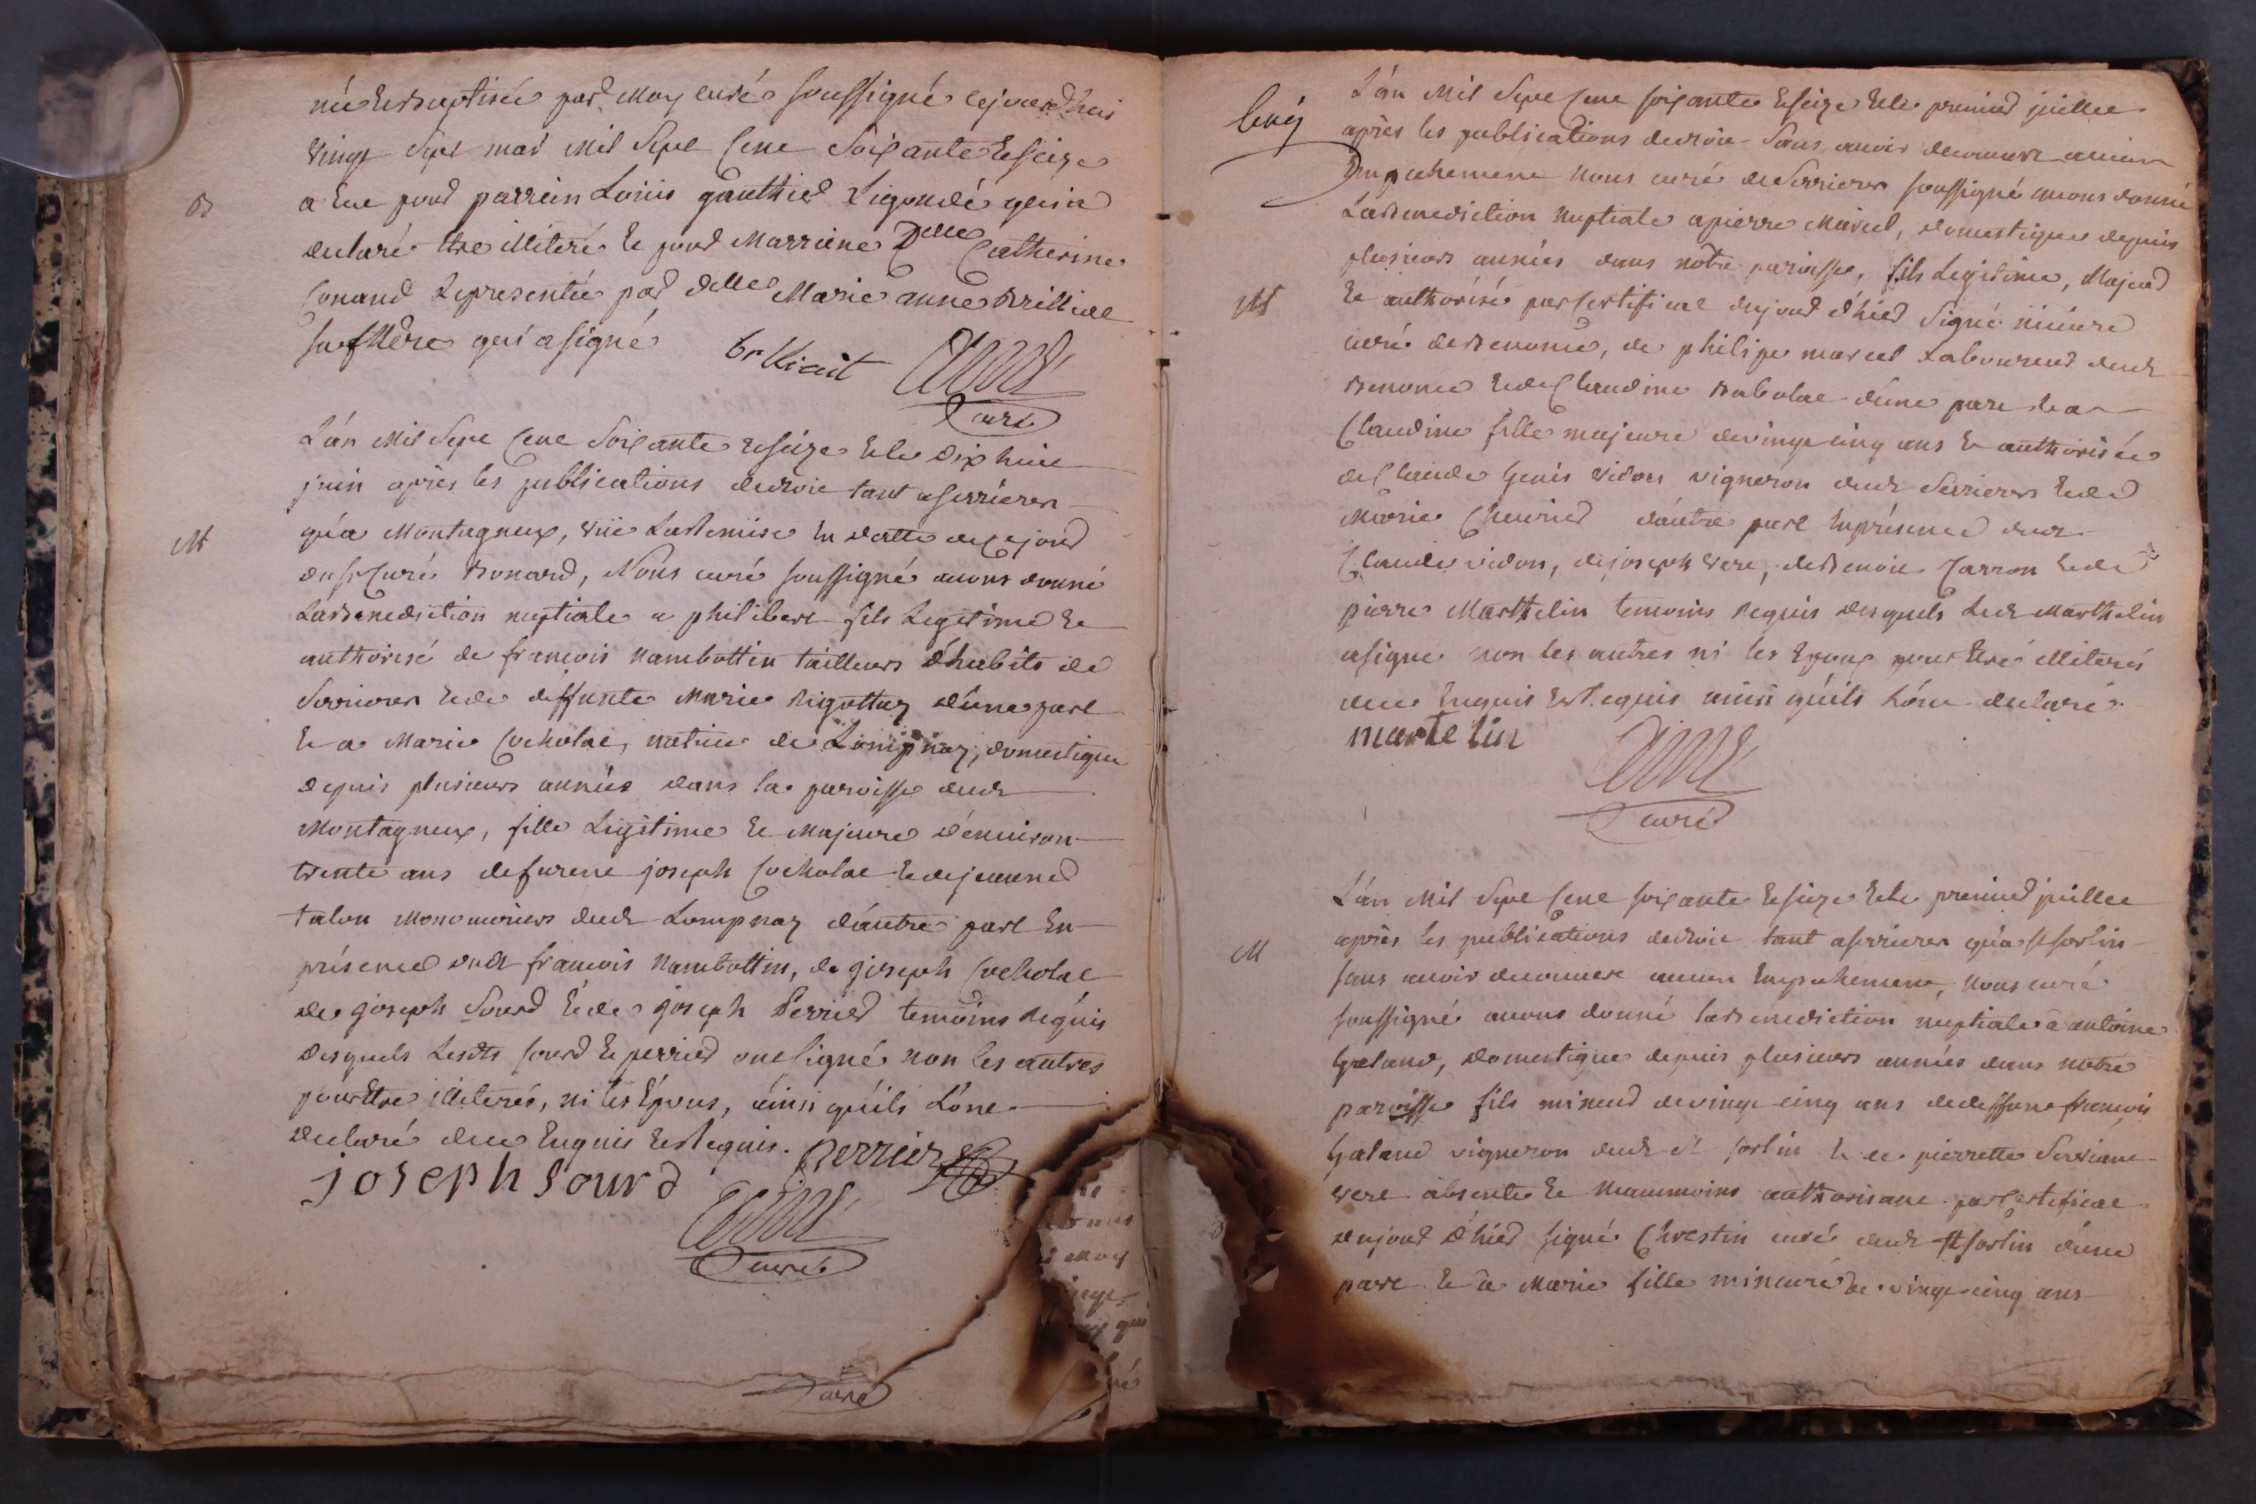 née et Baptisée par Moy curé soussigné cejourd'hui
vingt sept mai mil sept cent soixante et seize
B
a eut pour parrein Loüis gauthier Rigondé qui a
declaré etre illiteré et pour Marriene Delle Catherine
Conand Representée par delle Marie anne Brilliat
sa Mere qui a signé
brilliait
curé
L'án Mil Sept Cent Soixante et seize et le dix huit
juin après les publications de droit tant a serrieres
M
qu'a Montagneux, vüe La Remise en datte de ce jour
du sr Curé Bonard, Nous curé soussigné avons donné
La Benediction nuptiale a philibert fils Legitime et
authorisé de francois nambottin tailleurs d'habits de
Serrieres et de deffunte Marie Rigottaz d'une part
et a Marie Cocholat, native de Lompnaz, domestique
depuis plusieurs années dans la paroisse dudt
Montagneux, fille Legitime et Majeure d'environ
trente ans de furent joseph Cocholat et de jeanne
talon Manouvriers dudt Lompnaz d'autre part En
présence dudt francois nambottin, de joseph Cocholat
de joseph Sourd et de joseph Perrier temoins Requis
desquels Lesdts sourd et perrier ont signé non les autres
pour Etre illiterés, ni les Epous, ainsi qu'ils L'ont
declaré de ce Enquis et Requis. perrier
joseph sourd
curé
curé
cinq
L'án Mil Sept Cent soixante et seize et le premier juillet
après les publications de droit sans avoir decouvert aucun
Empechement nous curé de Serrieres soussigné avons donné
La Benediction nuptiale a pierre Marcel, domestique depuis
plusieurs années dans nôtre paroisse, fils Legitime, Majeur
M
et authorisé par Certificat du jour d'hier signé
curé de Benonce, de philipe marcel Laboureur dudt
Benonce et de Claudine Babolat d'une part et a
Claudine fille majeure de vingt cinq ans et authorisée
de Claude Genis vidon vigneron dudt Serrieres et de
Marie d'autre part En présence dudt
Claude vidon, de joseph vere, de Benoit Carron et de
pierre Marthelin temoins Requis desquels Ledt Marthelin
a signe non les autres ni les Epoux pour Etre illiterés
de ce Enquis et Requis ainsi qu'ils L'ont declaré.
martelin
curé
L'án Mil Sept Cent soixante et seize et le premier juillet
M
après les publications de droit tant a serrieres qu'a st sorlin
sans avoir decouvert aucun Empechement, nous curé
soussigné avons donné la Benediction nuptiale à antoine
Galand, domestique depuis plusieurs années dans notre
paroisse fils mineur de vingt cinq ans de deffunt francois
Galand vigneron dudt st sorlin et de pierrette
vere absente et neanmoins authorisant par certificat
du jour d'hier signé Chrestin curé dudt st sorlin d'une
part et a Marie fille mineure de vingt cinq ans